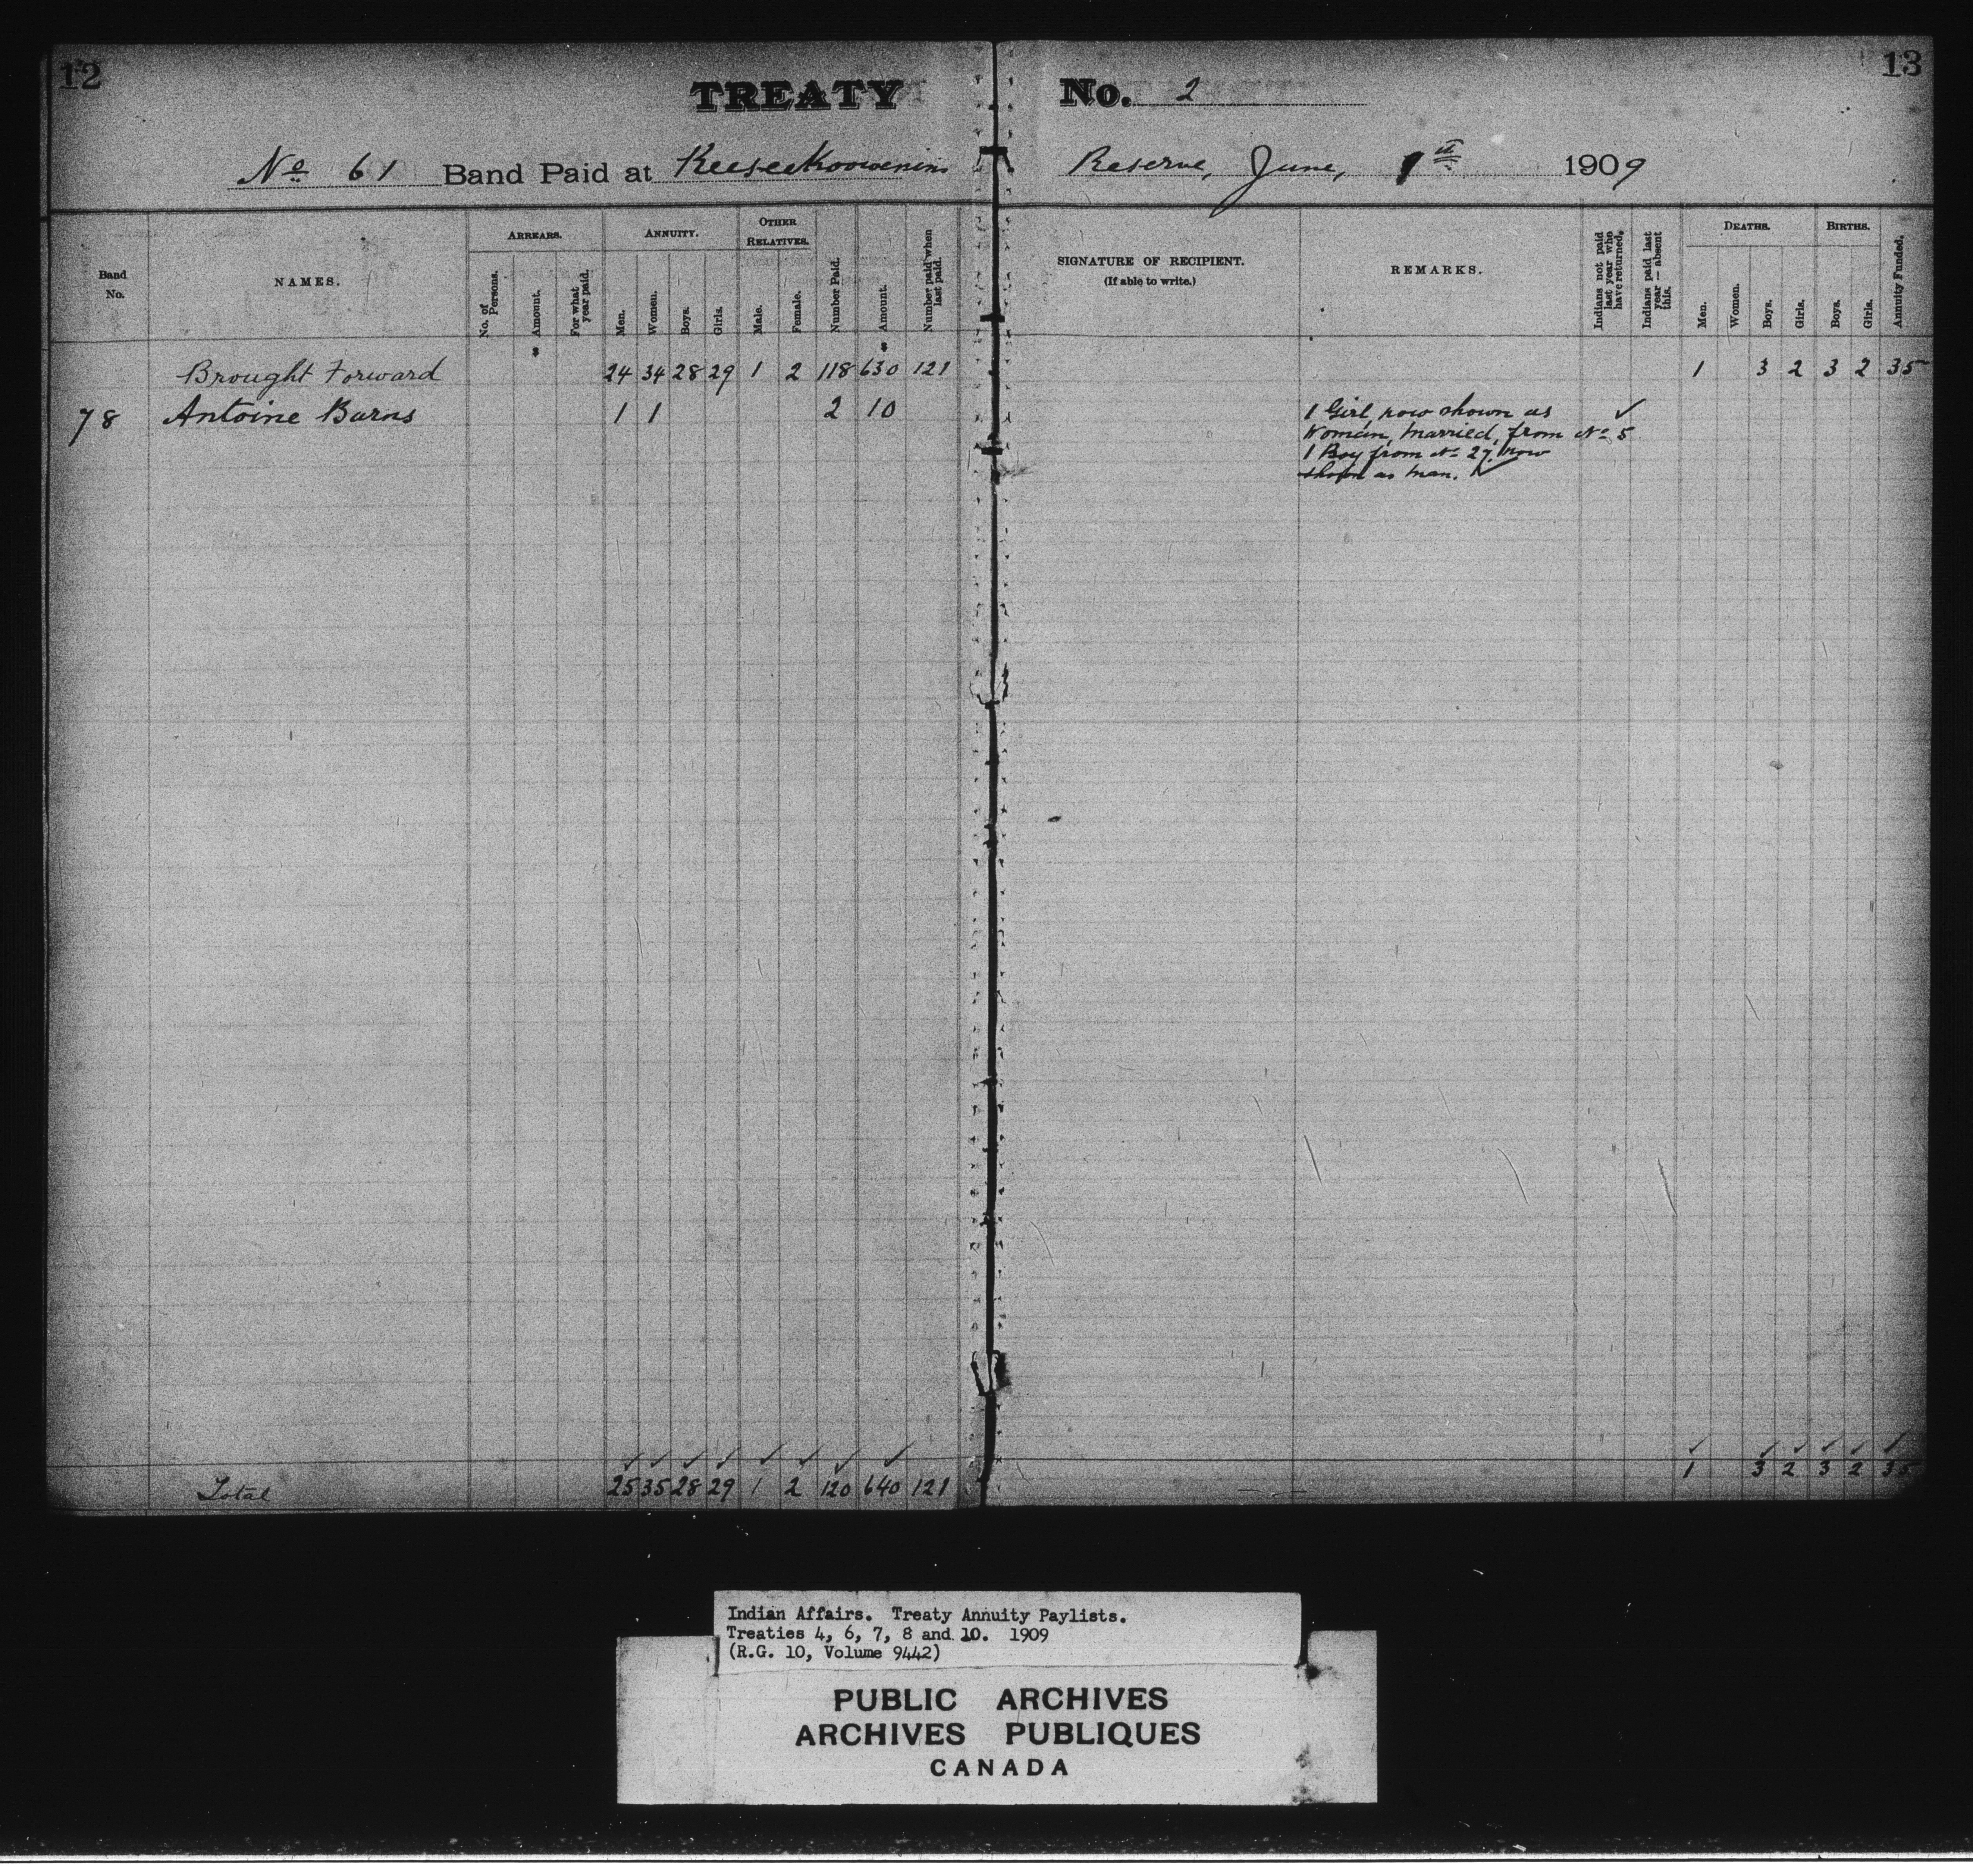 12
13
TREATY No. 2
No 61 Band Paid at Keeseekoowenin Reserve, June, 1st 1909
Band No.
NAMES.
ARREARS.
No. of Persons.
Amount.
For what year paid.
ANNUITY.
Men.
Women.
Boys.
Girls.
OTHER RELATIVES.
Male.
Female.
Number Paid.
Amount.
Number paid when last paid.
SIGNATURE OF RECIPIENT.
(If able to write.)
REMARKS.
Indians not paid last year who have returned.
Indians paid last year — absent this.
DEATHS.
Men.
Women.
Boys.
Girls.
BIRTHS.
Boys.
Girls.
Annuity Funded.
$ $
Brought Forward 24 34 28 29 1 2 118 630 121 1 3 2 3 2 35
78 Antoine Burns 1 1 2 10
1 Girl, now shown as ✓
Woman, married, from No 5
1 Boy from No 27. now
shown as man. ✓
✓ ✓ ✓ ✓ ✓ ✓ ✓ ✓ ✓ ✓ ✓ ✓ ✓ ✓
Total 25 35 28 29 1 2 120 640 121 1 3 2 3 2 35
Indian Affairs. Treaty Annuity Paylists.
Treaties 4, 6, 7, 8 and 10. 1909
(R.G. 10, Volume 9442)
PUBLIC ARCHIVES
ARCHIVES PUBLIQUES
CANADA